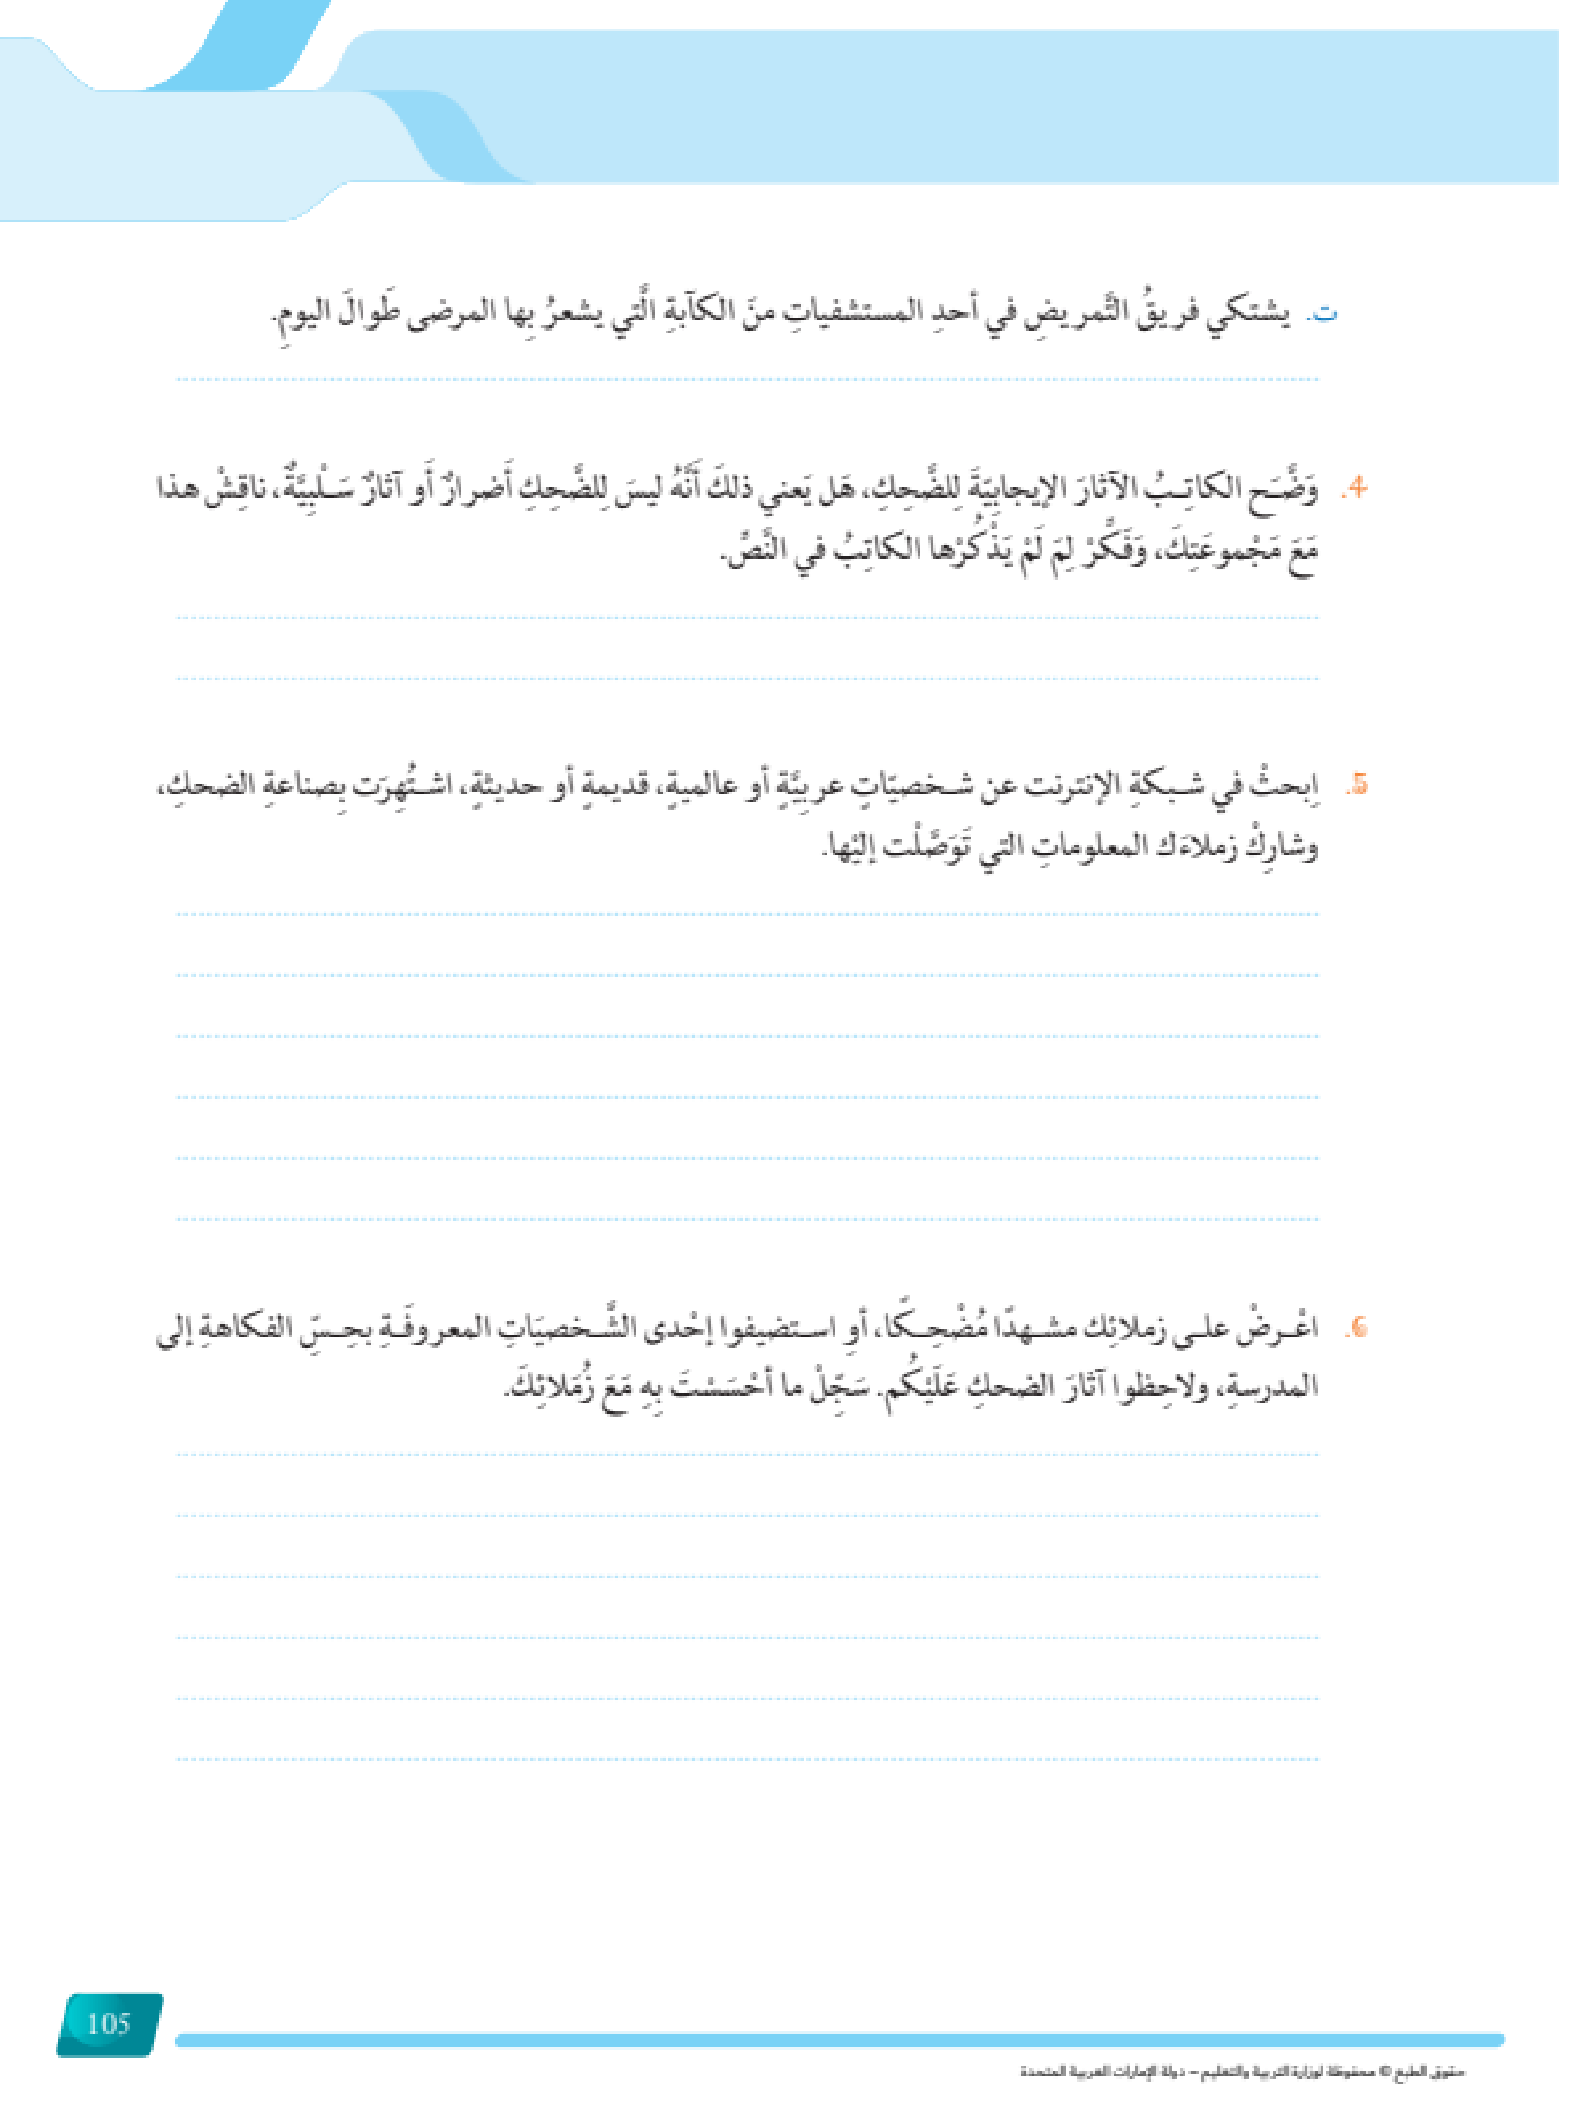 ت. يشتكي فريقُ التَّمريضِ في أحدِ المستشفياتِ منَ الكآبةِ الَّتي يشعرُ بِها المرضى طَوالَ اليومِ.
4. وَضَّـَح الكاتِـبُ الآثارَ الإيجابِيّةَ لِلضَّحِكِ، هَل يَعني ذلكَ أَنَّهُ ليسَ لِلضَّحِكِ أَضرارٌ أَو آثارٌ سَـلْبِيَّةٌ، ناقِشْ هذا
مَعَ مَجْموعَتِكَ، وَفَكِّرْ لِمَ لَمْ يَذْكُرْها الكاتِبُ في النَّصِّ.
5. اِبحثْ في شـبكةِ الإنترنت عن شـخصيّاتٍ عربيَّةٍ أو عالميةٍ، قديمةٍ أو حديثةٍ، اشـتُهِرَت بِصناعةِ الضحكِ،
وشارِكْ زملاءَك المعلوماتِ التي تَوَصَّلْت إليْها.
6. اعْـرضْ علـى زملائِك مشـهدًا مُضْحِـكًا، أوِ اسـتضيفوا إحْدى الشَّـخصيَاتِ المعروفَـةِ بحِـسّ الفكاهةِ إلى
المدرسةِ، ولاحِظوا آثارَ الضحكِ عَلَيْكُم. سَجِّلْ ما أحْسَسْتَ بِهِ مَعَ زُمَلائِكَ.
105
حقوق الطبع © محفوظة لوزارة التربية والتعليم – دولة الإمارات العربية المتحدة